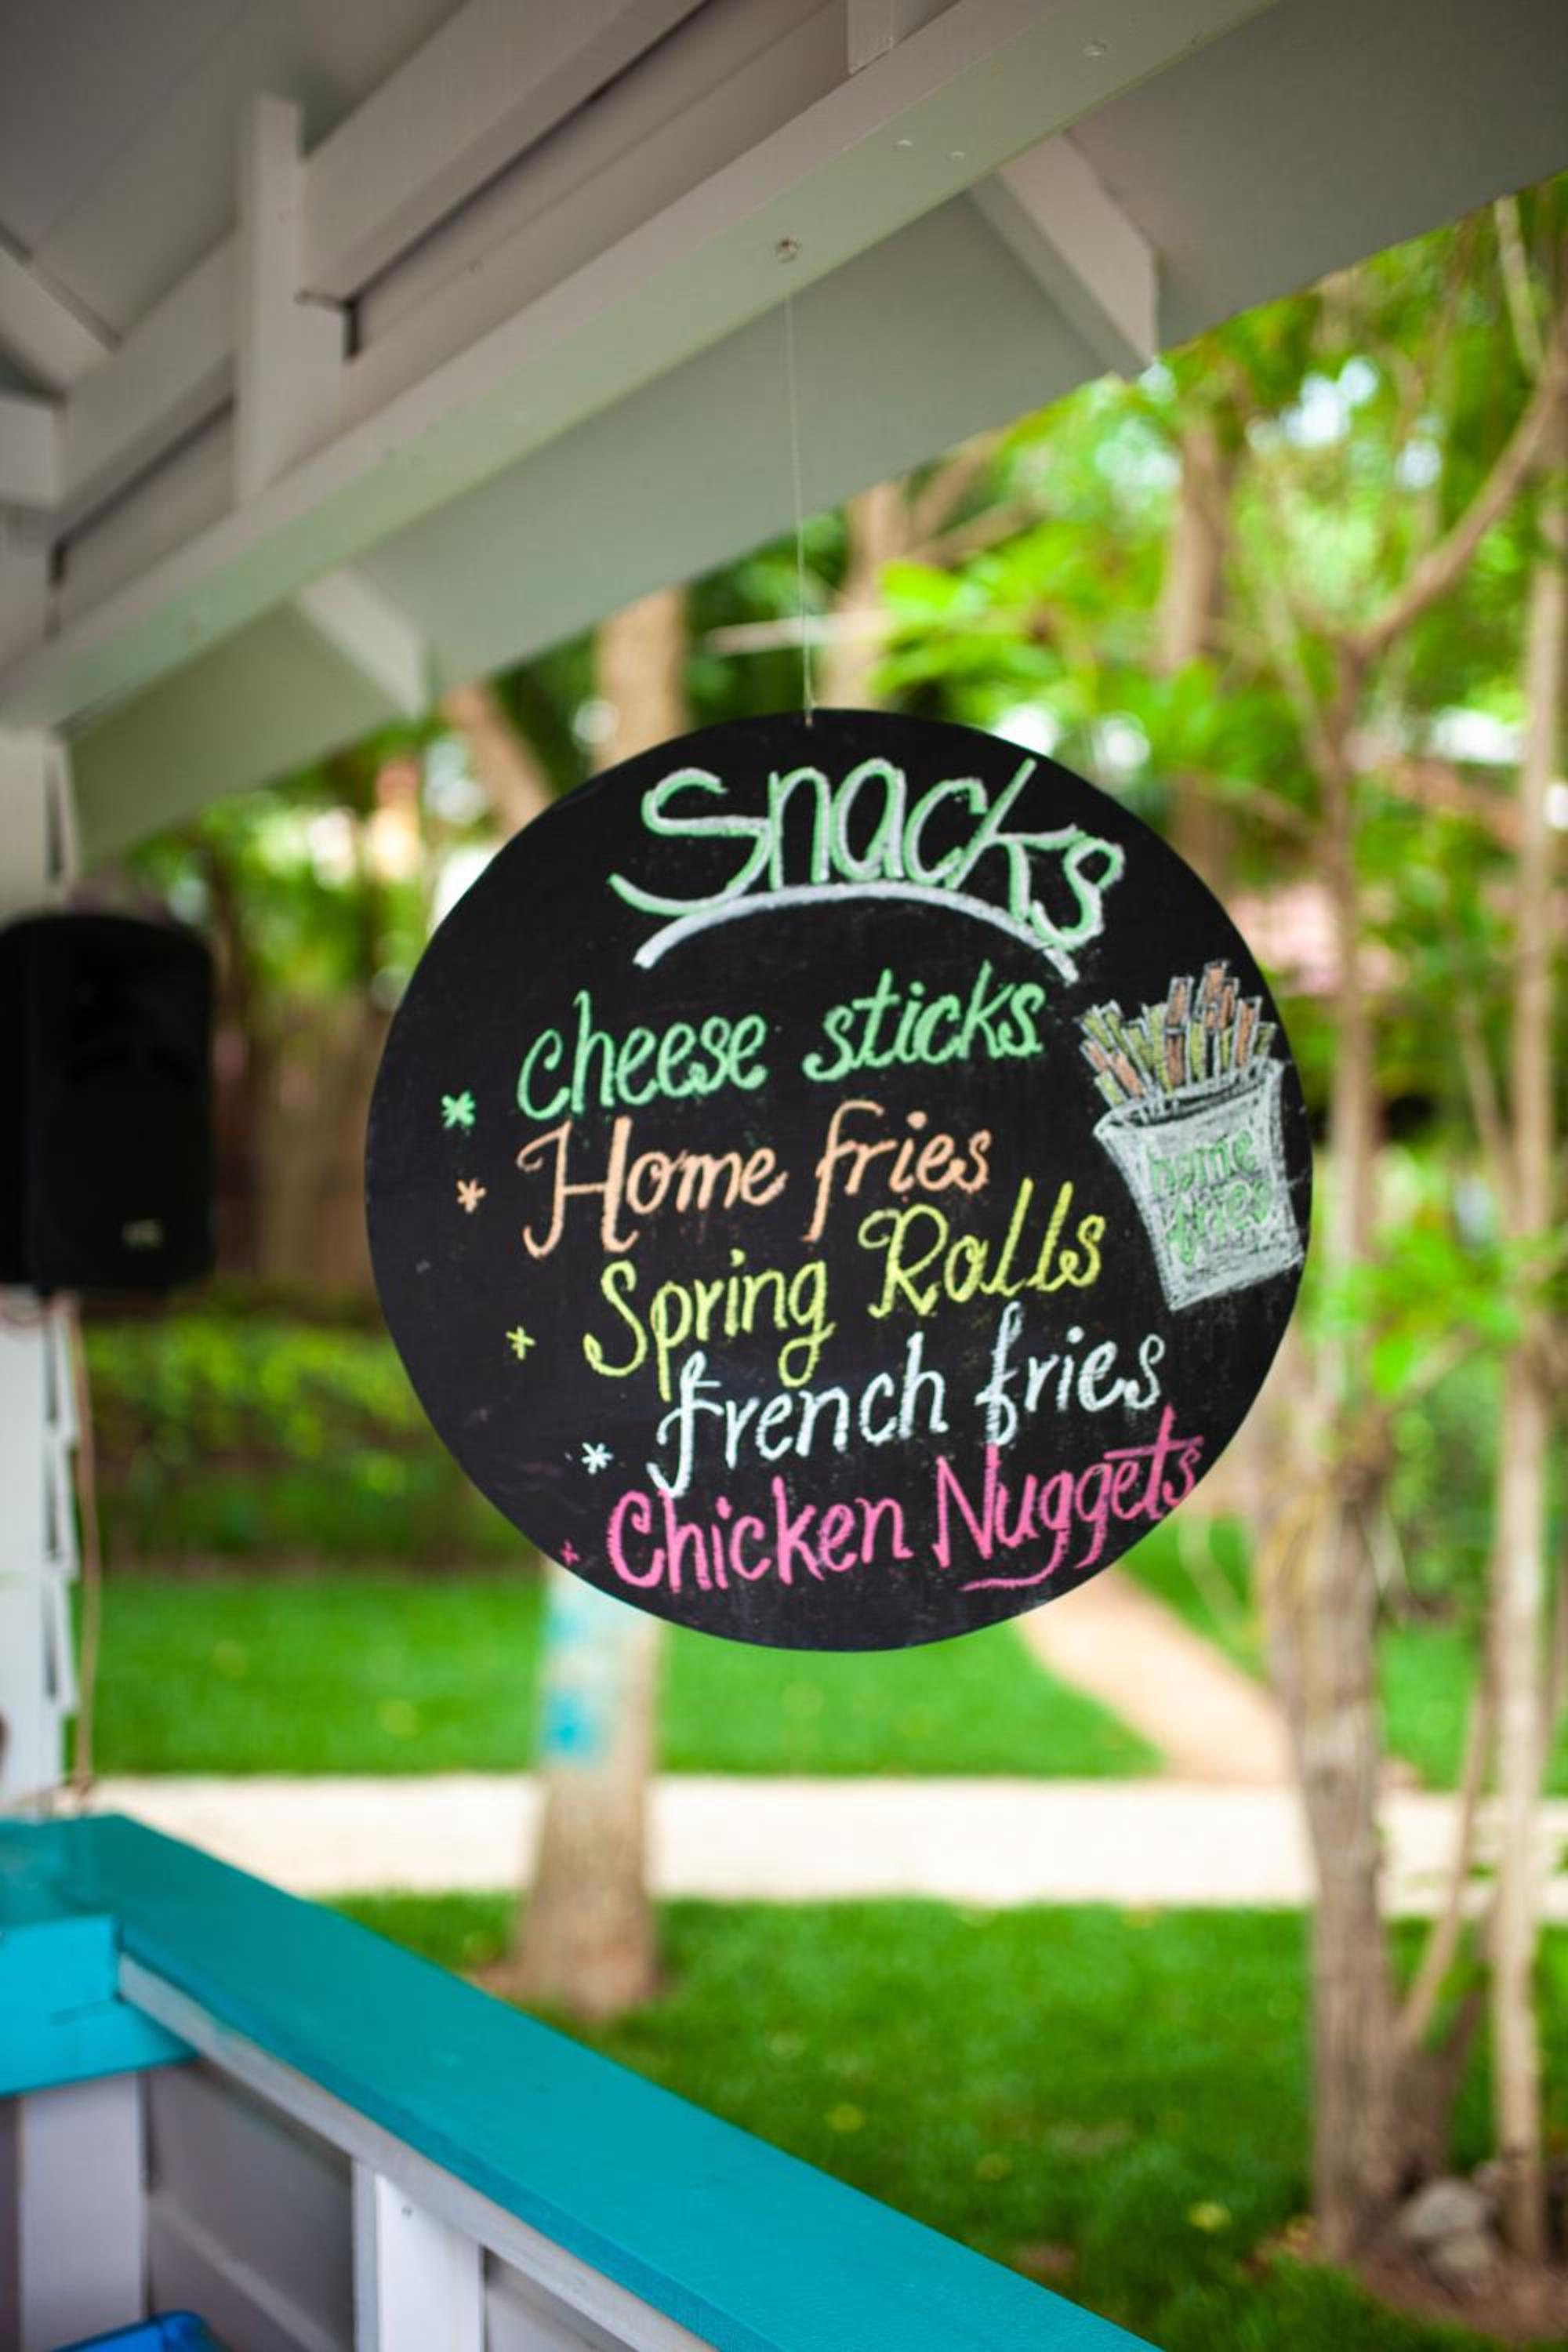 Snacks
* Cheese sticks
* Home fries
* Spring Rolls
* french fries
* Chicken Nuggets
home
fries